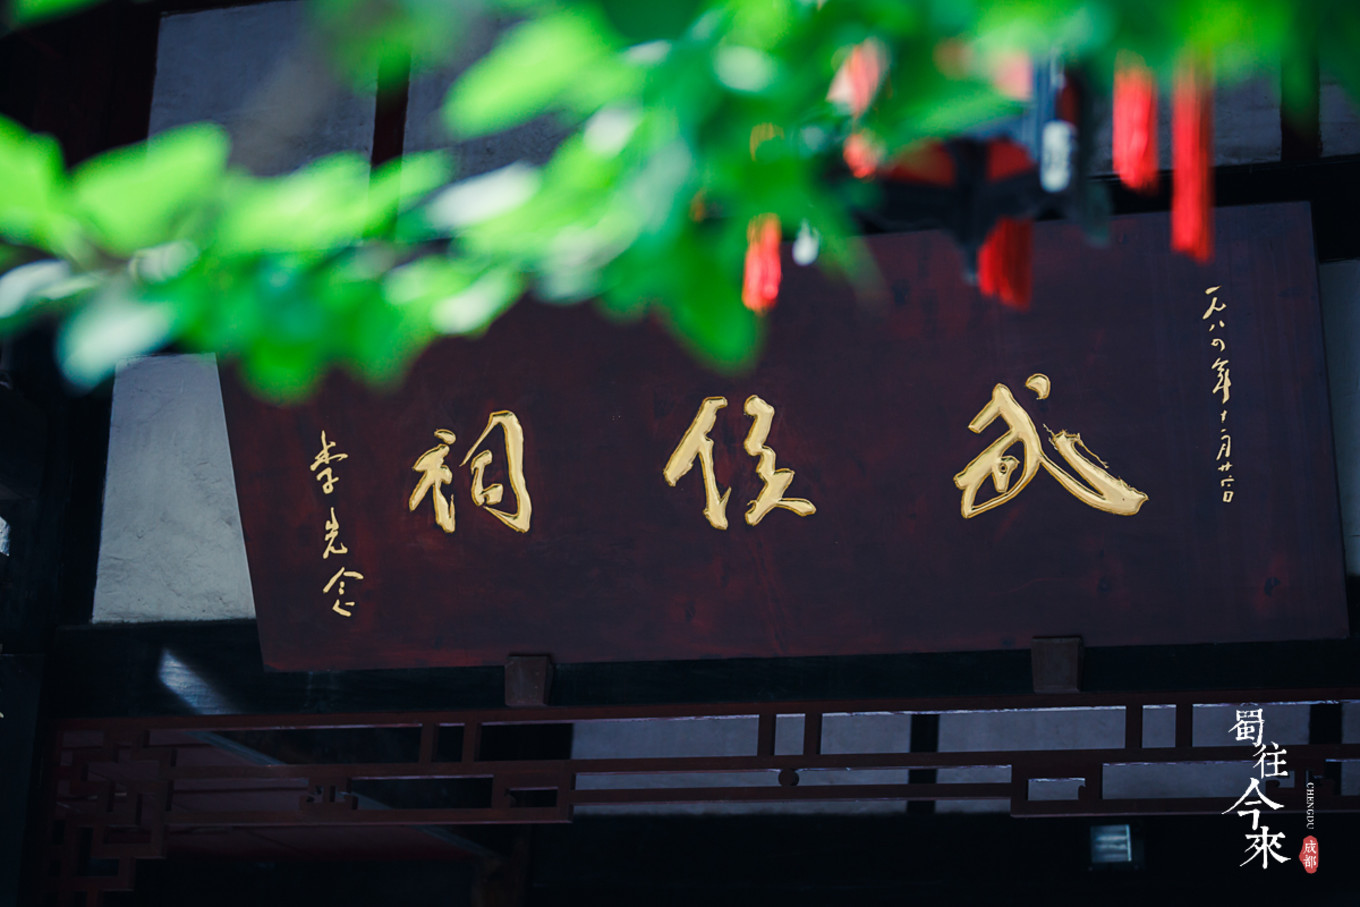 一九八四年十一月廿六日
武侯祠
李先念
蜀往今來
CHENGDU
成都